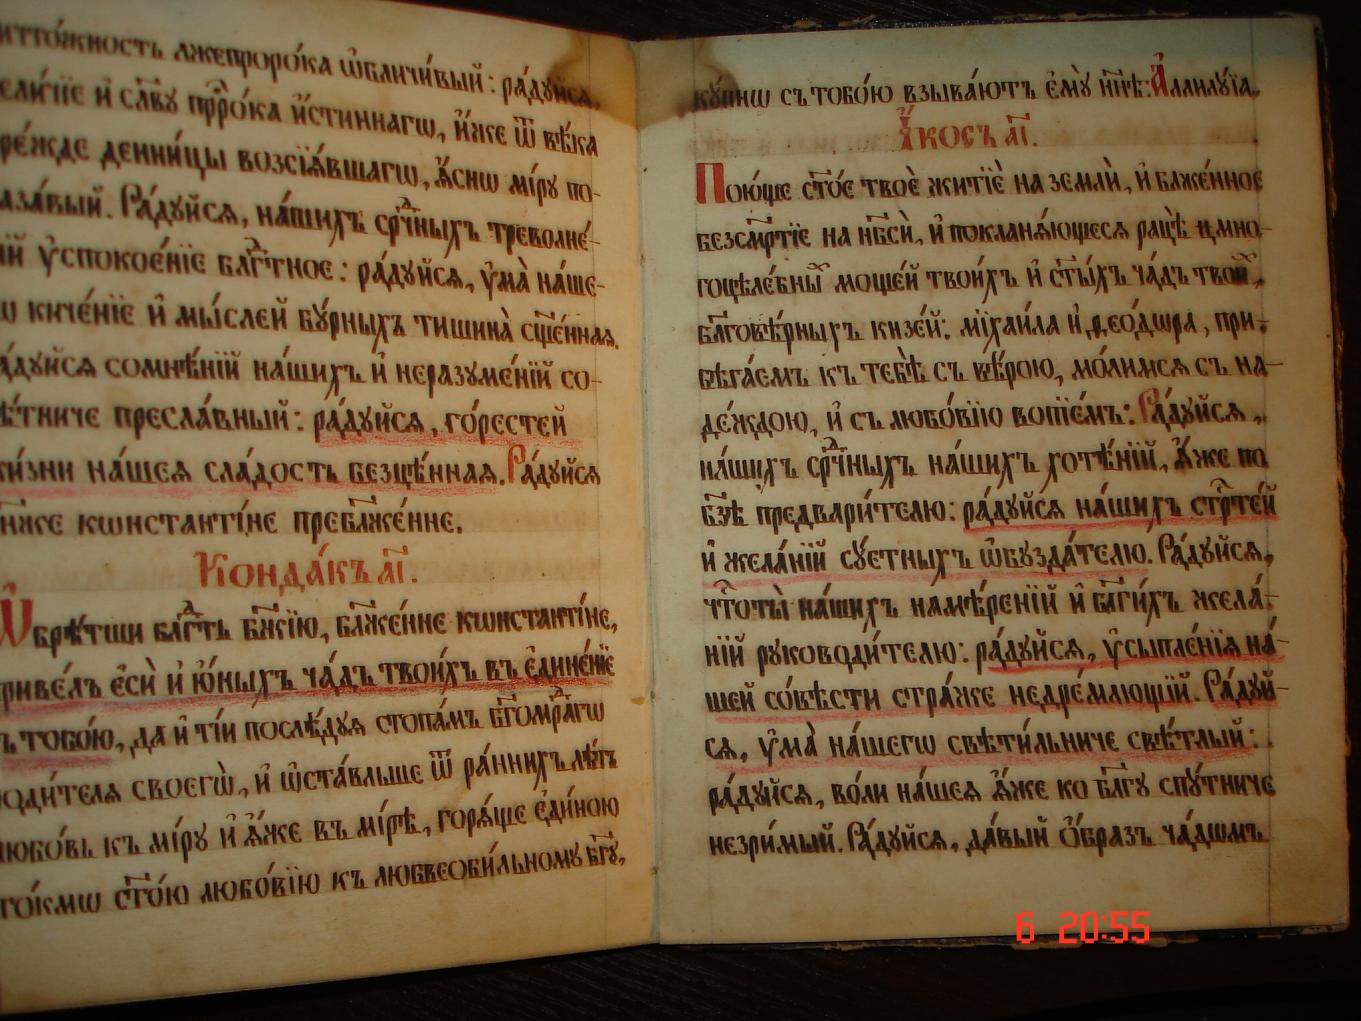 лжепроро́ка ѡ҆бличи́вый: ра́дуйсѧ,
и҆ сла́ву прⷪ҇ро́ка и҆́стиннагѡ, и҆́же ѿ вѣ́ка
денни́цы возсїѧ́вшагѡ, ꙗ҆́снѡ мі́ру по-
Ра́дуйсѧ, на́шихъ срⷣчныхъ треволне́-
ᲂу҆спокое́нїе блгⷣтное: ра́дуйсѧ, ᲂу҆ма̀ на́ше-
киче́нїе и҆ мы́слей бу́рныхъ тишина̀ сщ҃е́ннаѧ.
сомнѣ́нїй на́шихъ и҆ неразуме́нїй со-
пресла́вный: ра́дуйсѧ, го́рестей
жи́зни на́шеѧ сла́дость безцѣ́ннаѧ. Ра́дуйсѧ
кѡнстанті́не пребл҃же́нне.
Конда́къ а҃і.
Ѡ҆брѣ́тши блгⷣть бж҃їю, бл҃же́нне кѡнстанті́не,
приве́лъ є҆сѝ и҆ ю҆́ныхъ ча́дъ твои́хъ въ є҆дине́нїе
съ тобо́ю, да и҆ ті́и послѣ́дуѧ стопа́мъ бг҃омⷣрагѡ
роди́телѧ своегѡ̀, и҆ ѡ҆ста́вльше ѿ ра́ннихъ лѣ́тъ
любо́вь къ мі́ру и҆ ꙗ҆́же въ мі́рѣ, горѧ́ще є҆ди́ною
то́кмѡ ст҃о́ю любо́вїю къ любвеоби́льному бг҃у,
ку́пнѡ съ тобо́ю взыва́ютъ є҆мꙋ̀ нн҃ѣ: А҆ллилу́їа.
І҆́косъ а҃і.
Пою́ще ст҃о́е твоѐ житїѐ на землѝ, и҆ блаже́нное
безсме́ртїе на нб҃сѝ, и҆ покланѧ́ющесѧ ра́цѣ цѣ мно-
гоцѣле́бныⷯ моще́й твои́хъ и҆ ст҃ы́хъ ча́дъ твоиⷯ,
бл҃говѣ́рныхъ кнзе́й: мїхаи́ла и҆ ѳео́дѡра, при-
бѣга́емъ къ тебѣ̀ съ вѣ́рою, мо́лимсѧ съ на-
де́ждою, и҆ съ любо́вїю вопїе́мъ: Ра́дуйсѧ,
на́шихъ срⷣчныхъ на́шихъ хотѣ́нїй, ꙗ҆́же по
бз҃ѣ предвари́телю: ра́дуйсѧ на́шихъ стрⷭ҇те́й
и҆ жела́нїй су́етныхъ ѡ҆бузда́телю. Ра́дуйсѧ,
чⷭ҇тоты̀ на́шихъ намѣ́ренїй и҆ бл҃ги́хъ жела́-
нїй руководи́телю: ра́дуйсѧ, ᲂу҆сыпле́нїѧ на́-
шей со́вѣсти стра́же недре́млющїй. Ра́дуй-
сѧ, ᲂу҆ма̀ на́шегѡ свѣти́льниче свѣ́тлый:
ра́дуйсѧ, во́ли на́шеѧ ꙗ҆́же ко бл҃гу спу́тниче
незри́мый. Ра́дуйсѧ, да́вый ѻ҆́бразъ ча́дѡмъ
6 20:55